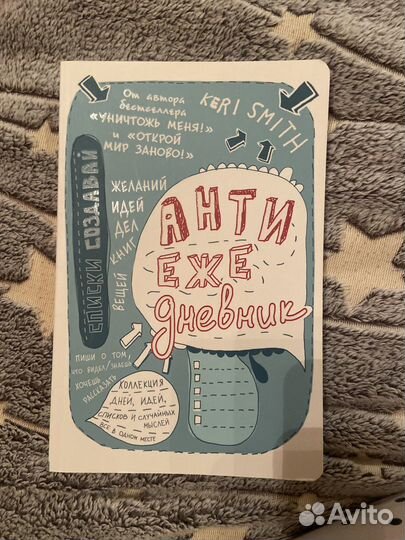 От автора
бестселлера
«УНИЧТОЖЬ МЕНЯ!»
и «ОТКРОЙ
МИР ЗАНОВО!»
KERI SMITH
СПИСКИ СОЗДАВАЙ
ЖЕЛАНИЙ
ИДЕЙ
ДЕЛ
КНИГ
ВЕЩЕЙ
АНТИ
ЕЖЕ
дневник
ПИШИ О ТОМ,
ЧТО ВИДЕЛ/ЗНАЕШЬ
ХОЧЕШЬ
РАССКАЗАТЬ
КОЛЛЕКЦИЯ
ДНЕЙ, ИДЕЙ,
СПИСКОВ И СЛУЧАЙНЫХ
МЫСЛЕЙ
ВСЕ В ОДНОМ МЕСТЕ
Avito